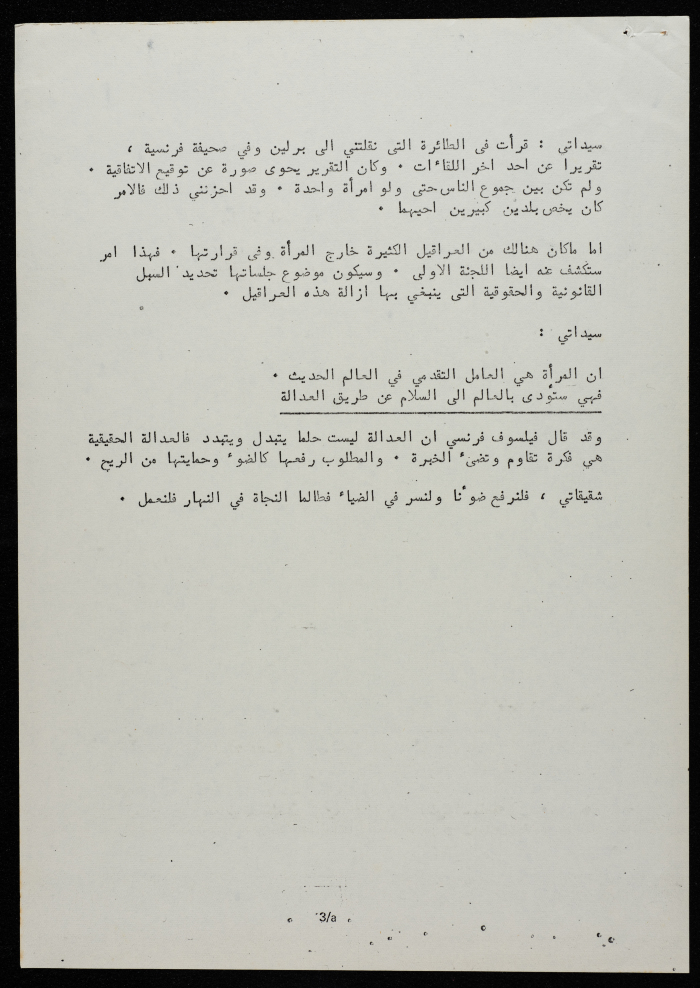 سيداتي : قرأت في الطائرة التى نقلتني الى برلين وفي صحيفة فرنسية ،
تقريرا عن احد اخر اللقاءات ٠ وكان التقرير يحوى صورة عن توقيع الاتفاقية ٠
ولم تكن بين جموع الناس حتى ولو امرأة واحدة ٠ وقد احزنني ذلك فالامر
كان يخص بلدين كبيرين احبهما ٠
اما ماكان هنالك من العراقيل الكثيرة خارج المرأة وفى قرارتها ٠ فهذا امر
ستكشف عنه ايضا اللجنة الاولى ٠ وسيكون موضوع جلساتها تحديد السبل
القانونية والحقوقية التى ينبغي بها ازالة هذه العراقيل ٠
سيداتي :
ان المرأة هي العامل التقدمي في العالم الحديث ٠
فهي ستؤدى بالعالم الى السلام عن طريق العدالة
وقد قال فيلسوف فرنسي ان العدالة ليست حلما يتبدل ويتبدد فالعدالة الحقيقية
هي فكرة تقاوم وتضىء الخبرة ٠ والمطلوب رفعها كالضوء وحمايتها من الريح ٠
شقيقاتي ، فلنرفع ضوئنا ولنسر في الضياء فطالما النجاة في النهار فلنعمل ٠
3/a